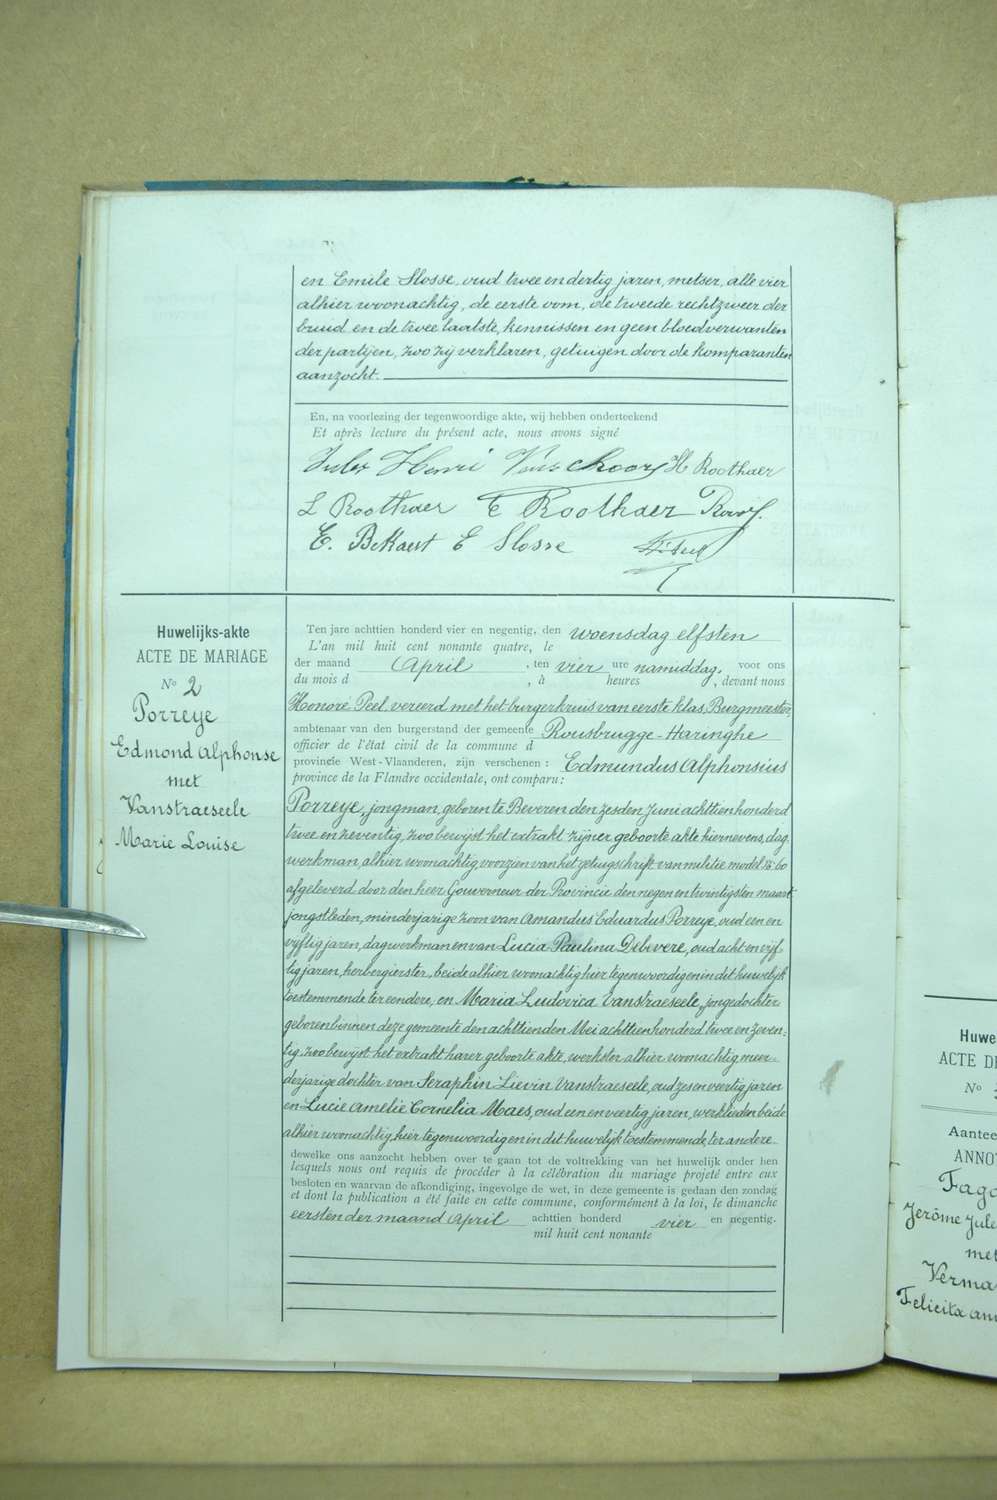 en Emile Slosse, oud twee en dertig jaren, metser, alle vier
alhier woonachtig, de eerste oom, de tweede rechtzweer der
bruid en de twee laatste, kennissen en geen bloedverwanten
der partijen, zoo zij verklaren, getuigen door de komparanten
aanzocht.
En, na voorlezing der tegenwoordige akte, wij hebben onderteekend
Et après lecture du présent acte, nous avons signé
Jules Henri Verschoore H Roothaer
L Roothaer E Roothaer
E. Bekaert E Slosse
Huwelijks-akte
ACTE DE MARIAGE
No 2
Porreye
Edmond Alphonse
met
Vanstraeseele
Marie Louise
Ten jare achttien honderd vier en negentig, den woensdag elfsten
L'an mil huit cent nonante quatre, le
der maand April, ten vier ure namiddag, voor ons
du mois d , à heures , devant nous
Honoré Peel, vereerd met het burgerkruis van eerste klas, Burgmeester,
ambtenaar van den burgerstand der gemeente Rousbrugge-Haringhe
officier de l'état civil de la commune d
provincie West-Vlaanderen, zijn verschenen : Edmundus Alphonsius
province de la Flandre occidentale, ont comparu :
Porreye, jongman, geboren te Beveren den zesden Juni achttien honderd
twee en zeventig, zoo bewijst het extrakt zijner geboorte akte hiernevens, dag
werkman, alhier woonachtig, voorzien van het getuigschrift van militie model 60
afgeleverd door den heer Gouverneur der Provincie den negen en twintigsten maart
jongstleden, minderjarige zoon van Amandus Eduardus Porreye, oud een en
vijftig jaren, dagwerkman en van Lucia Paulina Debevere, oud acht en vijf
tig jaren, herbergierster, beide alhier woonachtig hier tegenwoordig en in dit huwelijk
toestemmende ter eendere, en Maria Ludovica Vanstraeseele, jongedochter
geboren binnen deze gemeente den achttienden Mei achttien honderd twee en zeven-
tig, zoo bewijst het extrakt harer geboorte akte, werkster alhier woonachtig meer-
derjarige dochter van Seraphin Lievin Vanstraeseele, oud zes en veertig jaren
en Lucie Amelie Cornelia Maes, oud een en veertig jaren, werklieden beide
alhier woonachtig, hier tegenwoordig en in dit huwelijk toestemmende, ter andere
dewelke ons aanzocht hebben over te gaan tot de voltrekking van het huwelijk onder hen
lesquels nous ont requis de procéder à la célébration du mariage projeté entre eux
besloten en waarvan de afkondiging, ingevolge de wet, in deze gemeente is gedaan den zondag
et dont la publication a été faite en cette commune, conformément à la loi, le dimanche
eersten der maand April achttien honderd vier en negentig.
mil huit cent nonante
Huwe
ACTE DE
No
Aantee
ANNO
Fago
Jerôme Jule
met
Verma
Felicita ann